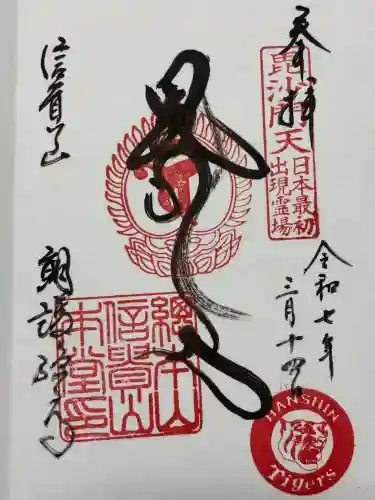 奉拝
毘沙門天
日本最初
出現霊場
令和七年
三月十四日
信貴山
朝護孫子寺
総本山
信貴山
本堂印
HANSHIN
Tigers